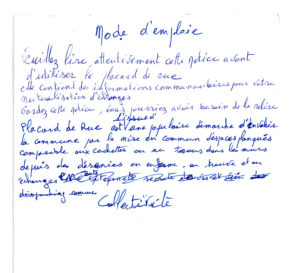 Mode d'emploie
Veuillez lire attentivement cette notice avant
d'utiliser le placard de rue
elle contient des informations communautaires pour votre
mutualisation d'échanges
Gardez cette notice, vous pourriez avoir besoin de la relire
Placard de Rue est une populaire démarche d'enrichir
la commune par la mise en commun d'espaces
comparable aux cachettes ou au trous dans les murs
depuis des décennies on enferme on trouve et on
échange
Collectivité